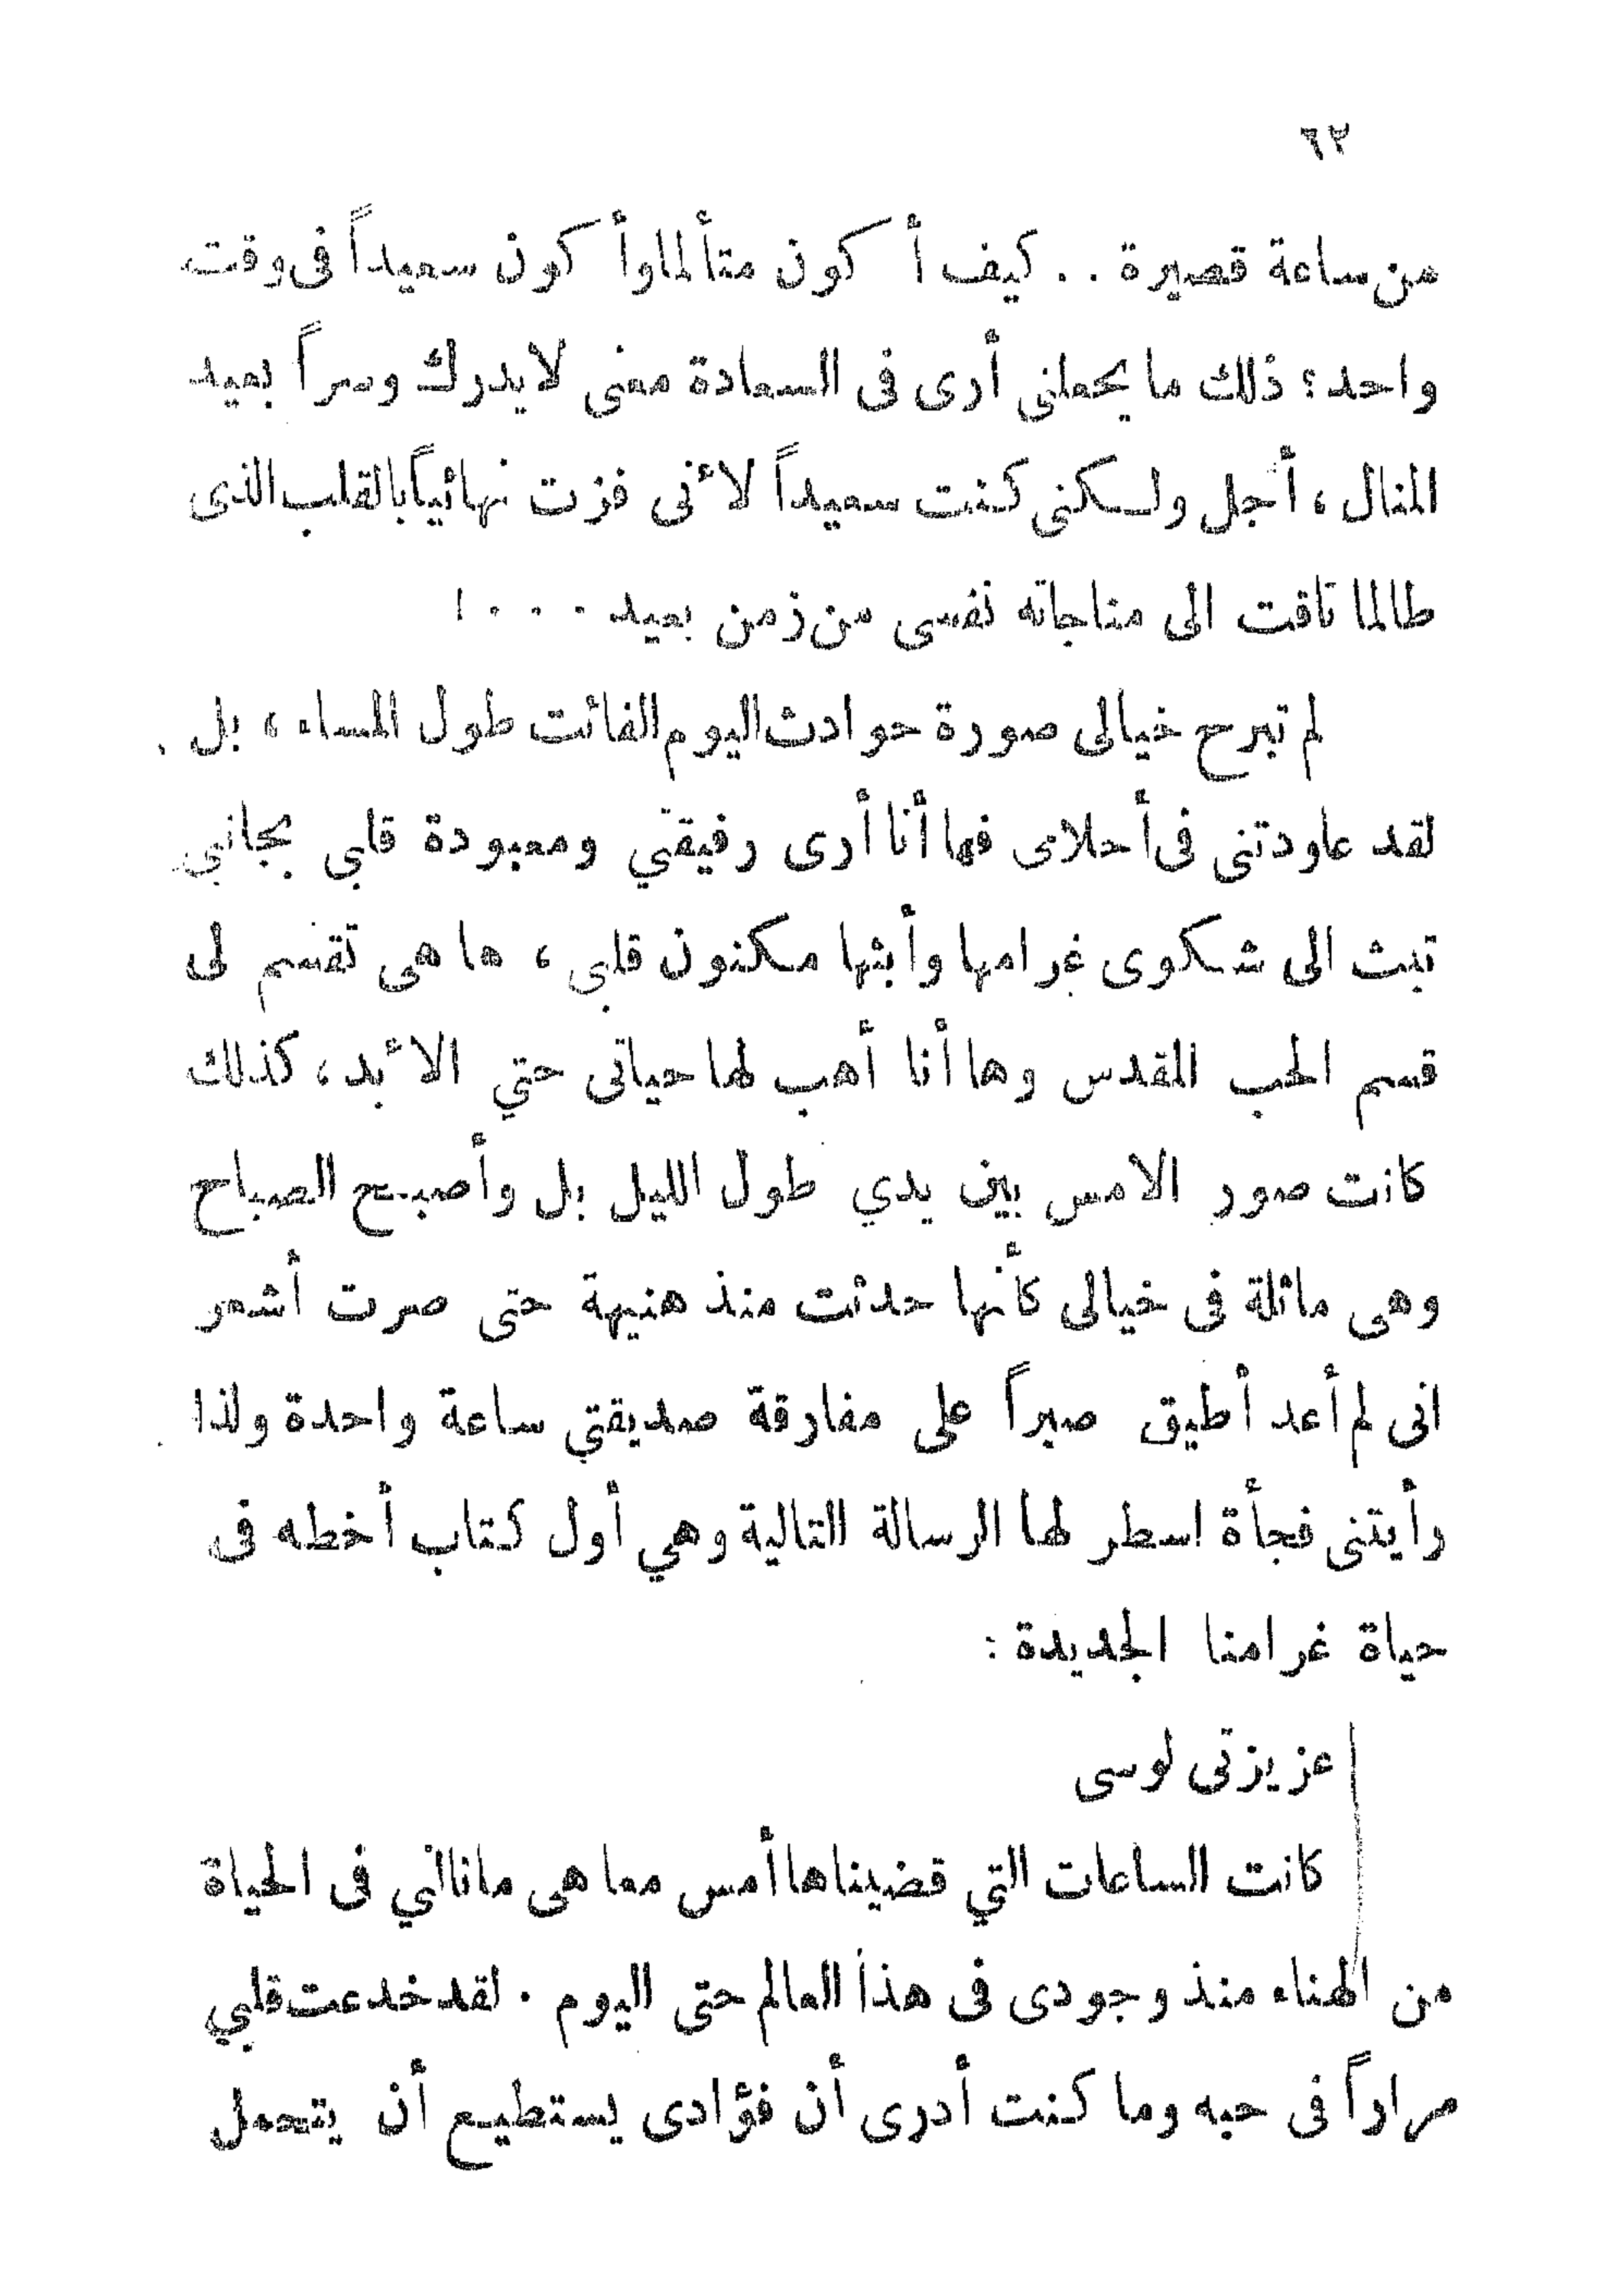 ٦٢
من ساعة قصيرة . . كيف أ كون متألماوأ كون سعيداً فى وقت
واحد ؛ ذلك ما يجعلنى أرى فى السعادة معنى لا يدرك وسراً بعيد
المنال ، أجل ولكنى كنت سعيداً لأنى فزت نهائياً بالقلب الذى
طالما تاقت الى مناجاته نفسى من زمن بعيد . . . !
لم تبرح خيالى صورة حوادث اليوم الفائت طول المساء ، بل
لقد عاودتنى فى أحلامى فها أنا أرى رفيقتي ومعبودة قلبي بجانبي
تبث الى شكوى غرامها وأبثها مكنون قلبى ، ها هى تقسم لى
قسم الحب المقدس وها أنا أهب لها حياتى حتي الأبد ، كذلك
كانت صور الامس بين يدي طول الليل بل وأصبح الصباح
وهى ماثلة فى خيالى كأنها حدثت منذ هنيهة حتى صرت أشعر
انى لم أعد أطيق صبراً على مفارقة صديقتي ساعة واحدة ولذا
رأيتنى فجأة اسطر لها الرسالة التالية وهي أول كتاب أخطه فى
حياة غرامنا الجديدة :
عزيزتى لوسى
كانت الساعات التي قضيناها أمس معا هى مانالني فى الحياة
من الهناء منذ وجودى فى هذا العالم حتى اليوم . لقد خدعت قلبي
مراراً فى حبه وما كنت أدرى أن فؤادى يستطيع أن يتحمل